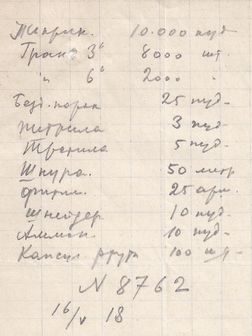 Тнирик. 10.000 пуд.
Гран 3" 8000 шт.
" 6" 2000 "
Безд. порох 25 пуд.
Тетрила 3 пуд.
Тротила 5 пуд.
Шнура. 50 метр
Фитил. 25 арш.
Шнейдер 10 пуд.
Аммон. 10 пуд.
Капсул ртути 100 шт.
N 8762
16/V 18